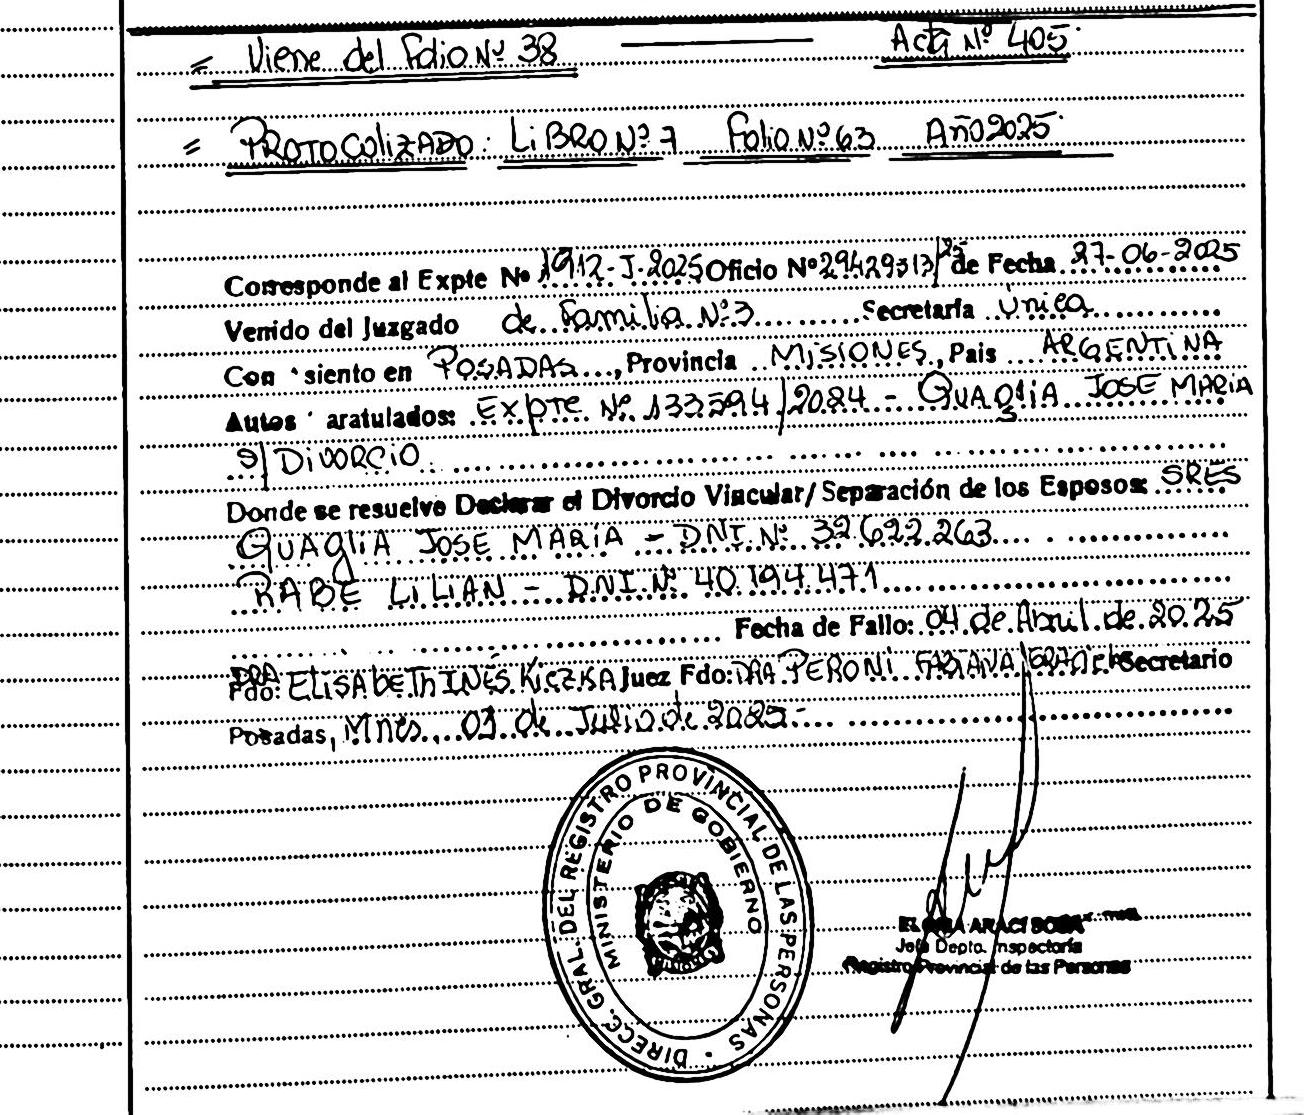 = Viene del Folio Nº 38 ——— Acta Nº 405.
= PROTOCOLIZADO: LiBRO Nº 7 Folio Nº 63 Año 2025.
Corresponde al Expte Nº 1912-J-2025 Oficio Nº 29429313/25 de Fecha 27-06-2025
Venido del Juzgado de Familia Nº 3 Secretaría Única
Con siento en POSADAS, Provincia MiSiONES, Pais ARGENTINA
Autos aratulados: Expte Nº 133594/2024 - QUAgliA JOSE MARiA
S/ DiVORCiO.
Donde se resuelve Declarar el Divorcio Vincular/Separación de los Esposos: SRES
QUAgliA JOSE MARiA - DNI. Nº 32.622.263
RABE LiLiAN - DNI. Nº 40.194.471
Fecha de Fallo: 04 de Abril de 2025
Fdo: DRA ELiSABETH INÉS KiCZKA Juez Fdo: DRA PERONi FABIANA GRACIELA Secretario
Posadas, Mnes, 03 de Julio de 2025.-
DIRECC. GRAL. DEL REGISTRO PROVINCIAL DE LAS PERSONAS
MINISTERIO DE GOBIERNO
ARACI
Jefa Depto. Inspectoría
Registro Provincial de las Personas